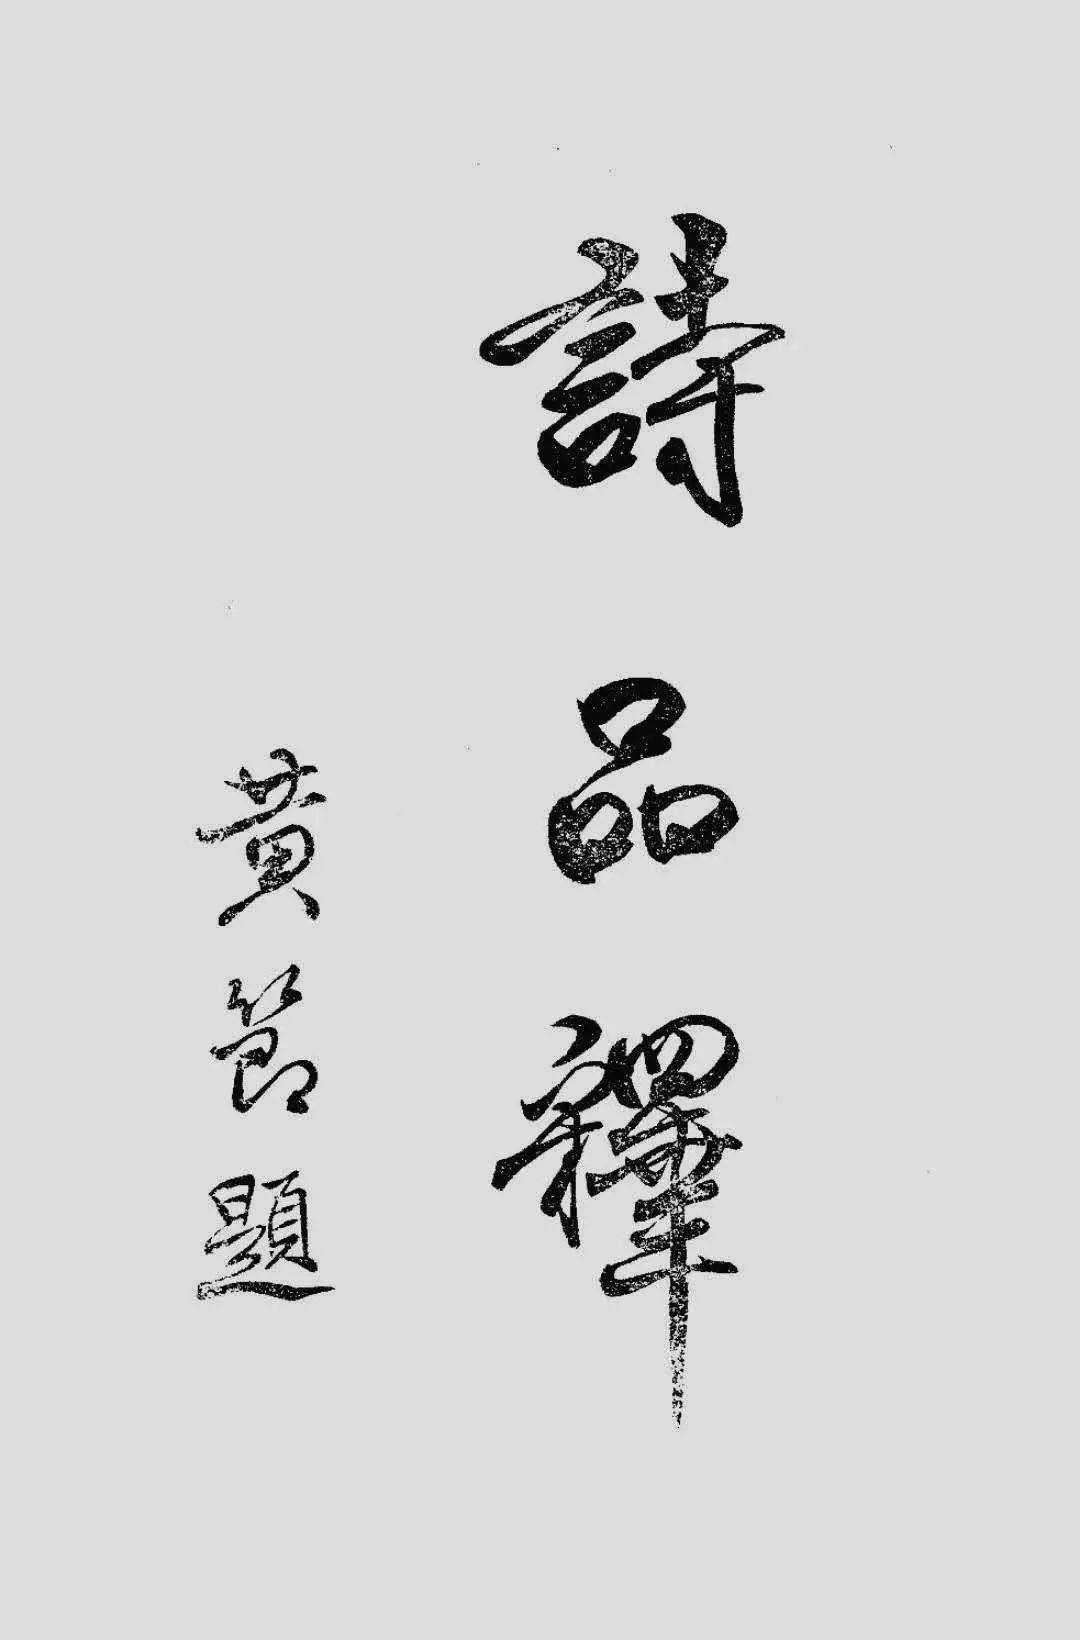 詩品釋
黄節題